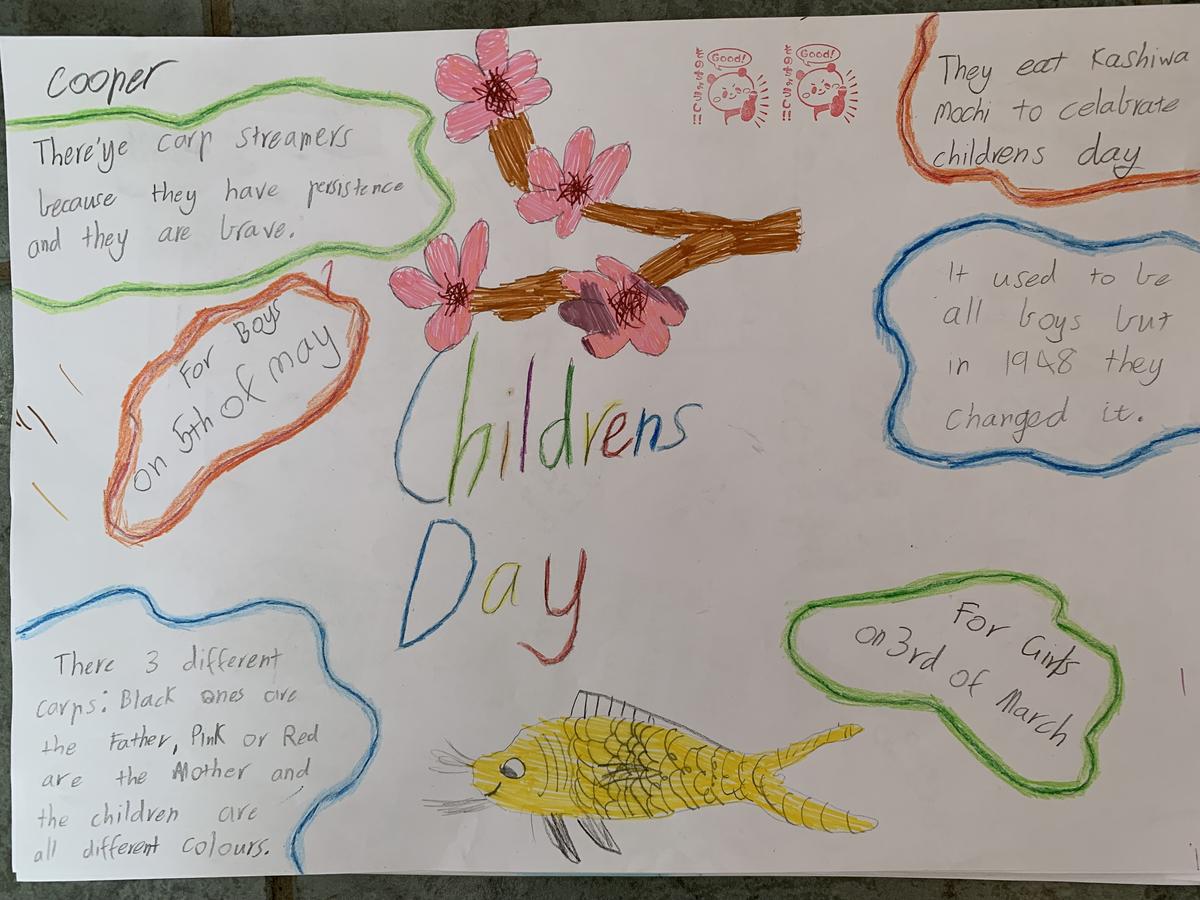 Cooper
There'ye carp streamers
because they have persistence
and they are brave.
Good!
Good!
They eat Kashiwa
Mochi to celabrate
childrens day
For Boys
on 5th of may
It used to be
all boys but
in 1948 they
changed it.
Childrens
Day
There 3 different
carps: Black ones are
the Father, Pink or Red
are the Mother and
the children are
all different colours.
For Girls
on 3rd of March